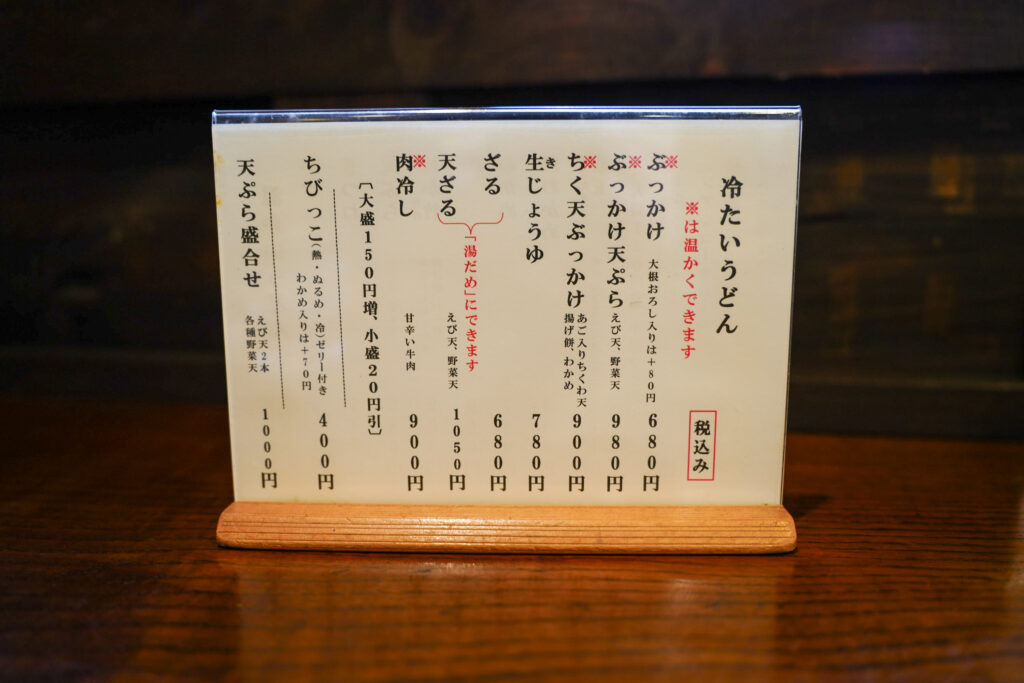 冷たいうどん
※は温かくできます
税込み
※ぶっかけ 大根おろし入りは+80円 680円
※ぶっかけ天ぷら えび天、野菜天 980円
※ちく天ぶっかけ あご入りちくわ天 揚げ餅、わかめ 900円
生じょうゆ 780円
き
ざる 680円
天ざる えび天、野菜天 1050円
「湯だめ」にできます
※肉冷し 甘辛い牛肉 900円
〔大盛150円増、小盛20円引〕
ちびっこ(熱・ぬるめ・冷)ゼリー付き 400円
わかめ入りは+70円
天ぷら盛合せ えび天2本 各種野菜天 1000円